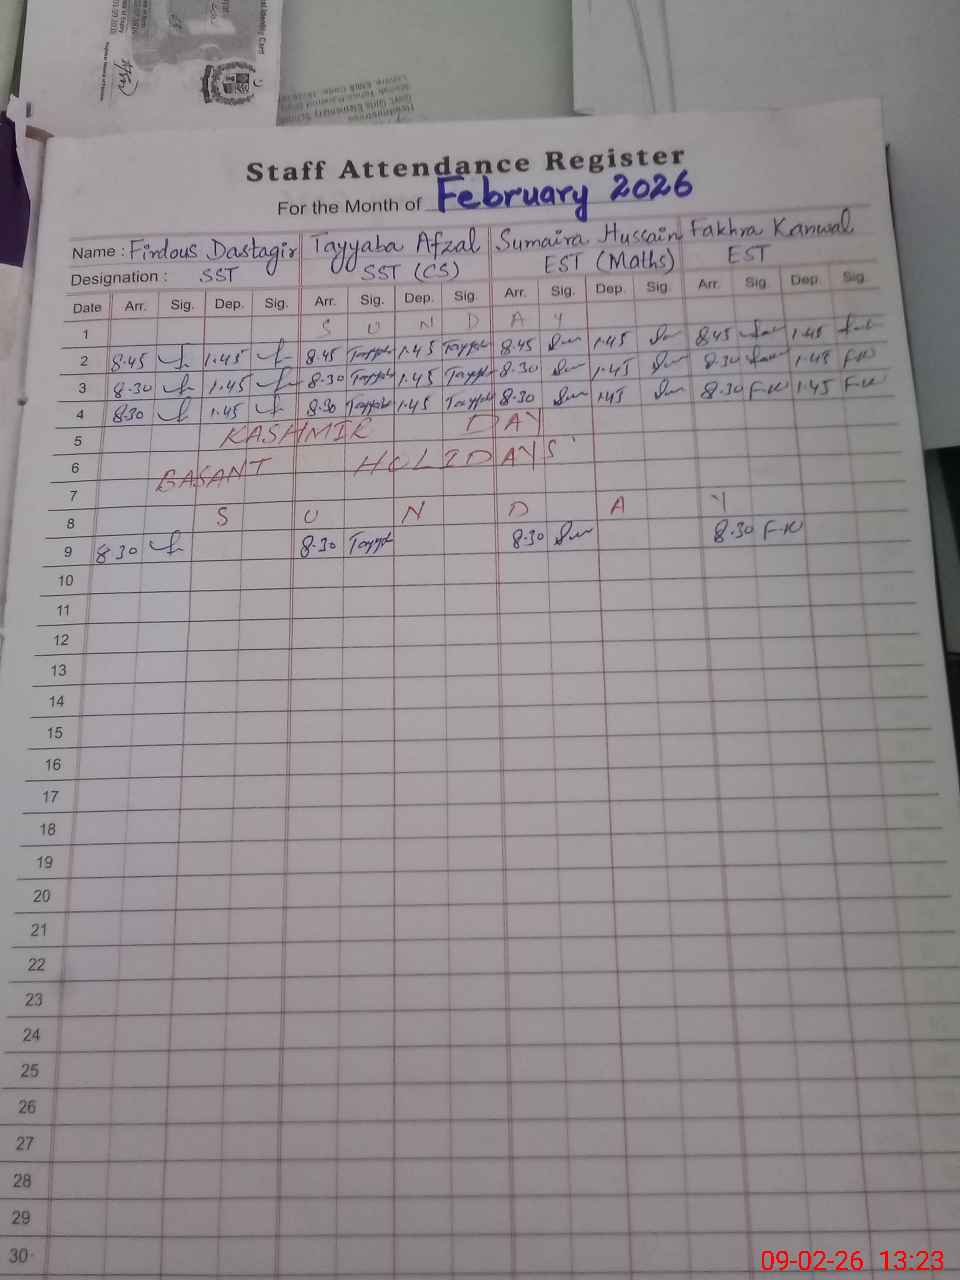 Staff Attendance Register
For the Month of February 2026
Name : Firdous Dastagir Tayyaba Afzal Sumaira Hussain Fakhra Kanwal
Designation : SST SST (CS) EST (Maths) EST
Date Arr. Sig. Dep. Sig. Arr. Sig. Dep. Sig. Arr. Sig. Dep. Sig. Arr. Sig. Dep. Sig.
1 S U N D A Y
2 8.45 1.45 8.45 1.45 8.45 1.45 8.45 1.45
3 8.30 1.45 8.30 1.45 8.30 1.45 8.30 F-K
4 8.30 1.45 8.30 1.45 8.30 1.45 8.30 F-K 1.45 F-K
5 KASHMIR DAY
6 BASANT HOLIDAYS
7
8 S U N D A Y
9 8.30 8.30 8.30 8.30 F-K
10
11
12
13
14
15
16
17
18
19
20
21
22
23
24
25
26
27
28
29
30
09-02-26 13:23